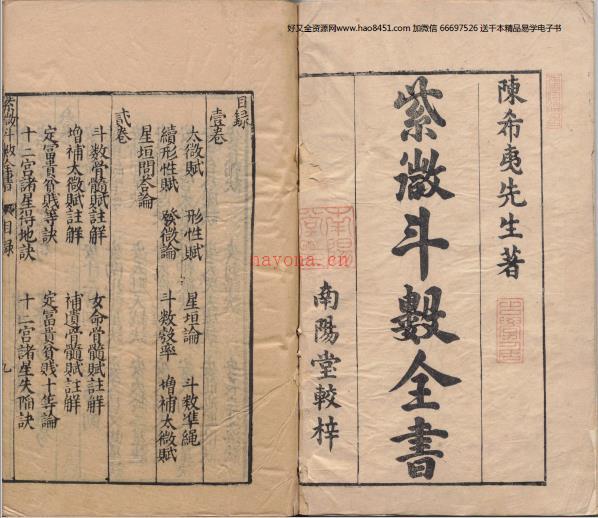 好又全资源网www.hao8451.com 加微信 66697526 送千本精品易学电子书
陳希夷先生著
紫微斗數全書
南陽堂較梓
目録
壹卷
太微賦 形性賦 星垣論 斗数準繩
續形性賦 發微論 斗数發率 增補太微賦
星垣問答論
貳卷
斗数骨髓賦註觧 女命骨髓賦註觧
增補太微賦註觧 補遺骨髓賦註觧
定富貴貧賤等訣 定富貴貧賤十等論
十二宫諸星得地訣 十二宫諸星失陷訣
紫微斗數全書 目录 九
nayona.cn